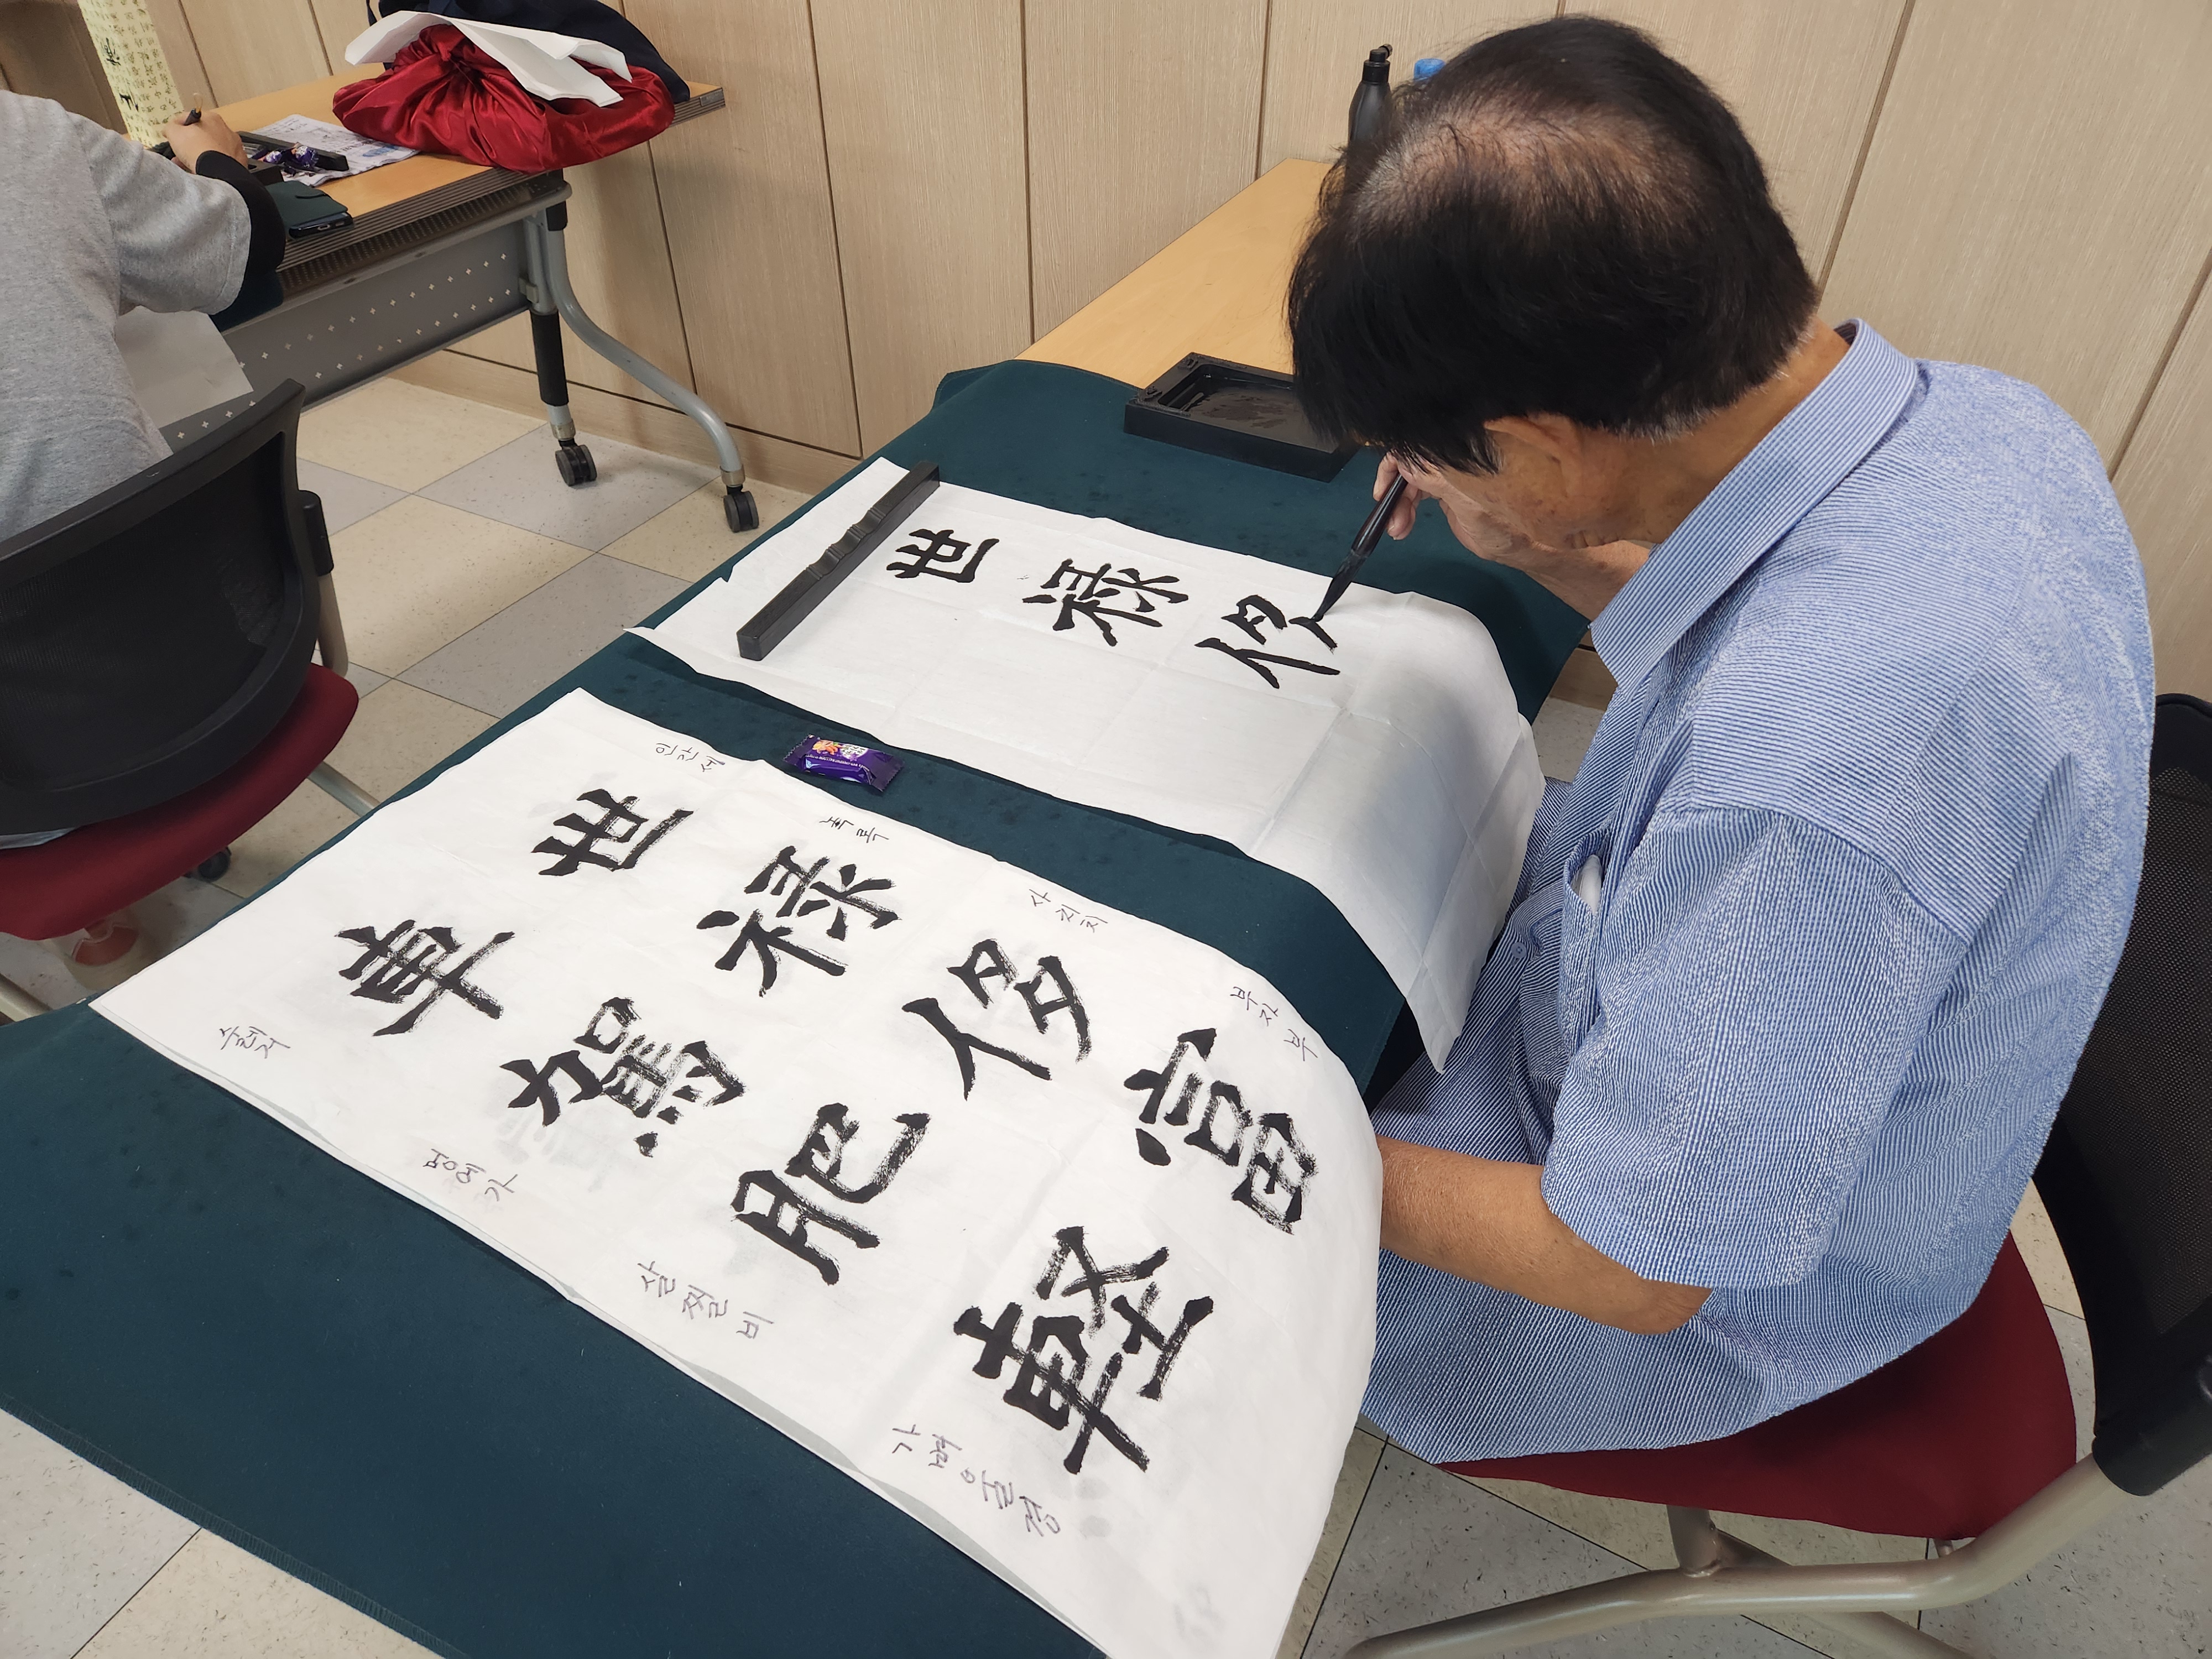 世祿侈
世祿侈富
車駕肥輕
인간세
녹록
사치치
부자부
수레거
멍에가
살찔비
가벼울경